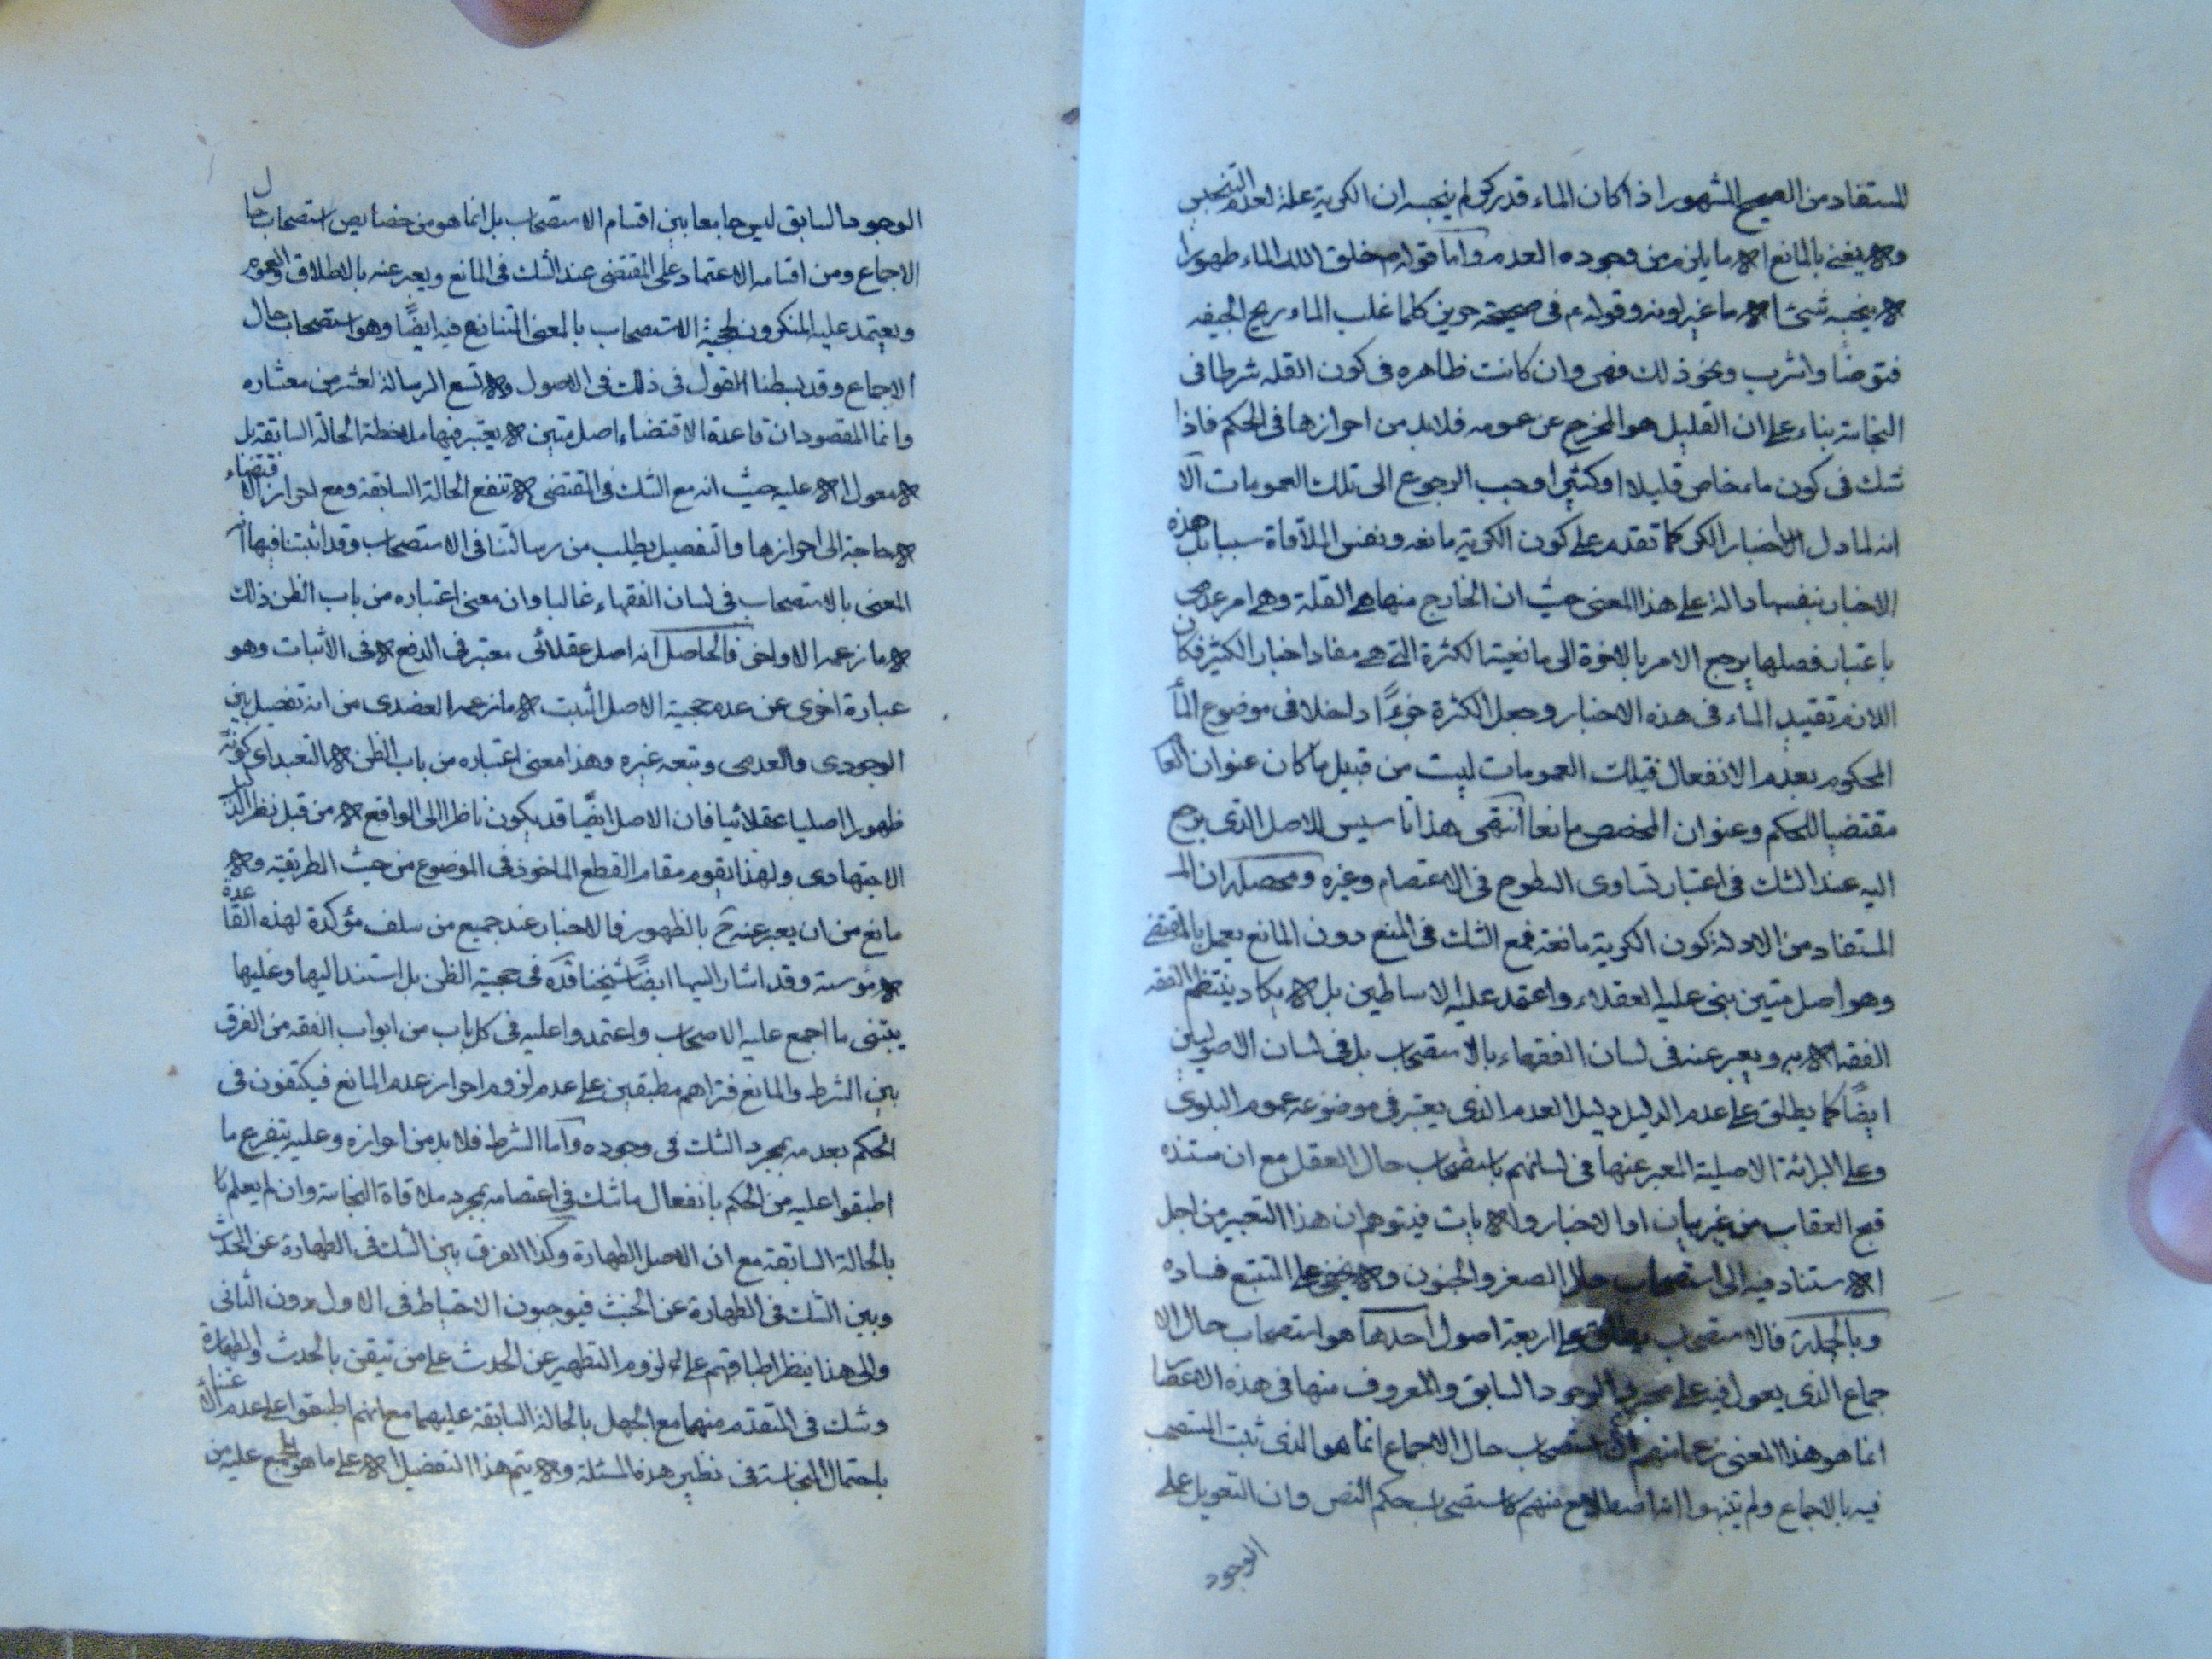 المستفاد من الصحيح المشهور اذا كان الماء قدر كر لم ينجسه ان الكرية علة لعدم التنجيس
ولا يغني بالمانع الا ما يلزم من وجوده العدم واما قوله خلق الله الماء طهورا
لا ينجسه شئ الا ما غير لونه وقوله ع في صحيحة حريز كلما غلب الماء ريح الجيفه
فتوضأ واشرب ونحو ذلك فهي وان كانت ظاهره في كون القله شرطا في
النجاسة بناء على ان القليل هو المخرج عن عمومه فلابد من احرازها في الحكم فاذا
شك في كون ماء خاص قليلا او كثيرا وجب الرجوع الى تلك العمومات الا
انه لما دل الاخبار الكر كما تقدم على كون الكرية مانعه ونفس الملاقاة سببا بل هذه
الاخبار بنفسها دالة على هذا المعنى حيث ان الخارج منها هي القلة وهي امر عدمي
باعتبار فصلها يرجع الامر بالاخرة الى مانعية الكثرة التي هي مفاد اخبار الكثير فكان
اللازم تقييد الماء في هذه الاخبار وجعل الكثرة جزءًا داخلا في موضوع الماء
المحكوم بعدم الانفعال فتلك العمومات ليست من قبيل ما كان عنوان العا
مقتضيا للحكم وعنوان المخصص مانعا انتهى هذا تاسيس للاصل الذي يرجع
اليه عند الشك في اعتبار تساوي السطوح في الاعتصام وغيره ومحصله ان
المستفاد من الادلة كون الكرية مانعة فمع الشك في المنع دون المانع يعمل بالمقتضي
وهو اصل متين بنى عليه العقلاء واعتمد عليه الاساطين بل لا يكاد ينتظم الفقه
الفقه الا به ويعبر عنه في لسان الفقهاء بالاستصحاب بل في لسان الاصوليين
ايضًا كما يطلق على عدم الدليل دليل العدم الذي يعتبر في موضوعه عموم البلوى
وعلى البرائة الاصلية المعبر عنها في لسانهم باستصحاب حال العقل مع ان مستنده
قبح العقاب من غير بيان او الاخبار والايات فيتوهم ان هذا التعبير من اجل
الاستناد فيه الى استصحاب حال الصغر والجنون ولا يخفى على المتتبع فساده
وبالجملة فالاستصحاب يطلق على اربعة اصول احدها هو استصحاب حال الا
جماع الذي يعول فيه على مجرد الوجود السابق والمعروف منها في هذه الاعصا
انما هو هذا المعنى زعما منهم ان استصحاب حال الاجماع انما هو الذي ثبت المستصحب
فيه بالاجماع ولم يتنبهوا انه اصطلاح منهم كاستصحاب حكم النص وان التعويل على
الوجود
الوجود السابق ليس جامعا بين اقسام الاستصحاب بل انما هو من خصايص استصحاب حال
الاجماع ومن اقسامه الاعتماد على المقتضي عند الشك في المانع ويعبر عنه بالاطلاق والعموم
ويعتمد عليه المنكرون لحجية الاستصحاب بالمعنى المتنازع فيه ايضًا وهو استصحاب حال
الاجماع وقد بسطنا القول في ذلك في الاصول ولا تسع الرسالة لعشر من معشاره
وانما المقصود ان قاعدة الاقتضاء اصل متين لا يعتبر فيها ملاحظة الحالة السابقة بل
لا معول الا عليه حيث انه مع الشك في المقتضي لا تنفع الحالة السابقة ومع احراز الاقتضاء
لا حاجة الى احرازها والتفصيل يطلب من رسالتنا في الاستصحاب وقد اثبتنا فيها انه
المعنى بالاستصحاب في لسان الفقهاء غالبا وان معنى اعتباره من باب الظن ذلك
لا ما زعمه الاواخر فالحاصل انه اصل عقلائي معتبر في الدفع لا في الاثبات وهو
عبارة اخرى عن عدم حجية الاصل المثبت لا ما زعمه العضدي من انه تفصيل بين
الوجودي والعدمي وتبعه غيره وهذا معنى اعتباره من باب الظن لا التعبد اي كونه
ظهورا اصليا عقلائيا فان الاصل ايضًا قد يكون ناظرا الى الواقع لا من قبل نظر الدليل
الاجتهادي ولهذا يقوم مقام القطع الماخوذ في الموضوع من حيث الطريقية ولا
مانع من ان يعبر عنه ح بالظهور فالاخبار عند جميع من سلف مؤكدة لهذه القاعدة
لا مؤسسة وقد اشار اليها ايضًا شيخنا قده في حجية الظن بل استند اليها وعليها
يبتنى ما اجمع عليه الاصحاب واعتمدوا عليه في كل باب من ابواب الفقه من الفرق
بين الشرط والمانع فتراهم مطبقين على عدم لزوم احراز عدم المانع فيكتفون في
الحكم بعدمه بمجرد الشك في وجوده واما الشرط فلابد من احرازه وعليه يتفرع ما
اطبقوا عليه من الحكم بانفعال ما شك في اعتصامه بمجرد ملاقاة النجاسة وان لم يعلم
بالحالة السابقة مع ان الاصل الطهارة وكذا الفرق بين الشك في الطهارة عن الحدث
وبين الشك في الطهارة عن الخبث فيوجبون الاحتياط في الاول دون الثاني
والى هذا ينظر اطباقهم على لزوم التطهير عن الحدث على من تيقن بالحدث والطهارة
وشك في المتقدم منهما مع الجهل بالحالة السابقة عليهما مع انهم اطبقوا على عدم الاعتناء
باحتمال النجاسة في نظير هذه المسئلة ولا يتم هذا التفصيل الا على ما هو المجمع عليه من